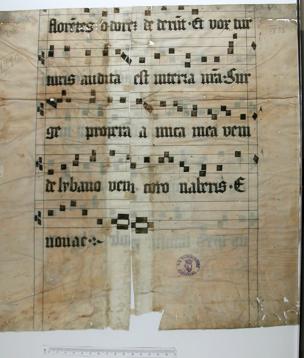 florētes odorez de derūt · Et vox tur
turis audita est in terra nr̄a · Sur
ge propera a mica mea veni
de lybano veni coro naberis · E
uouae ·